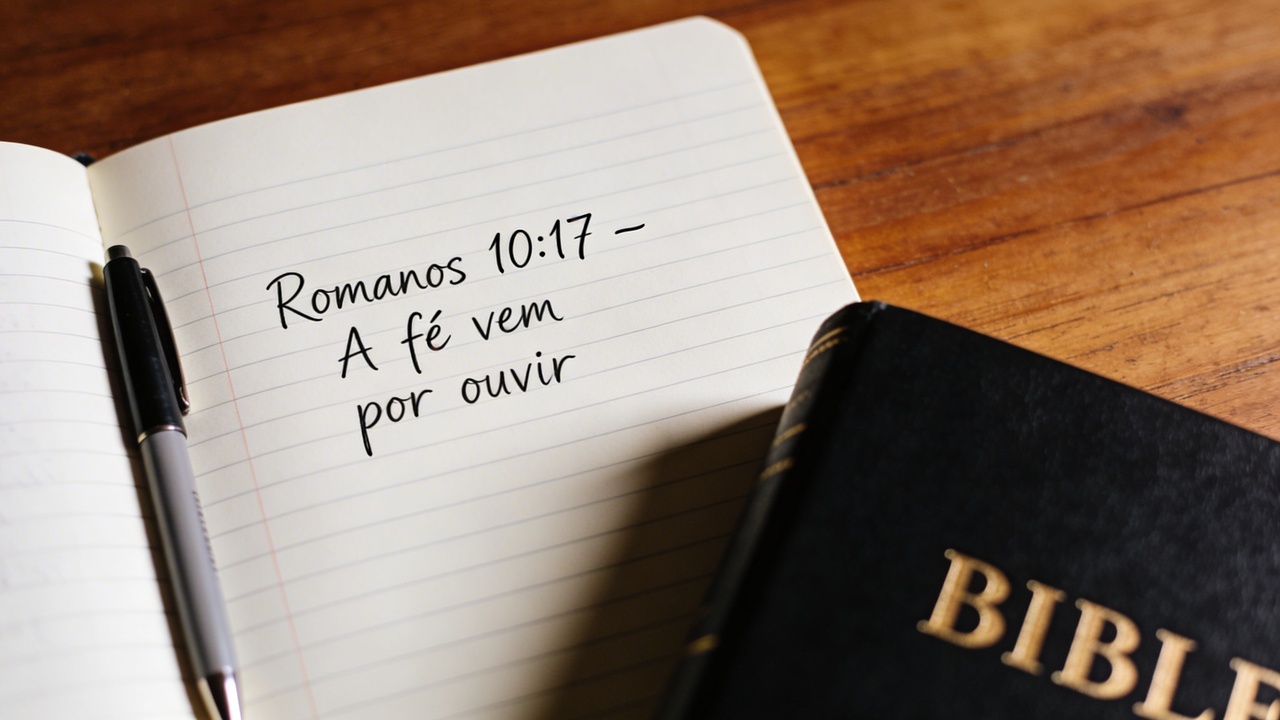 Romanos 10:17 –
A fé vem
por ouvir
BIBLE